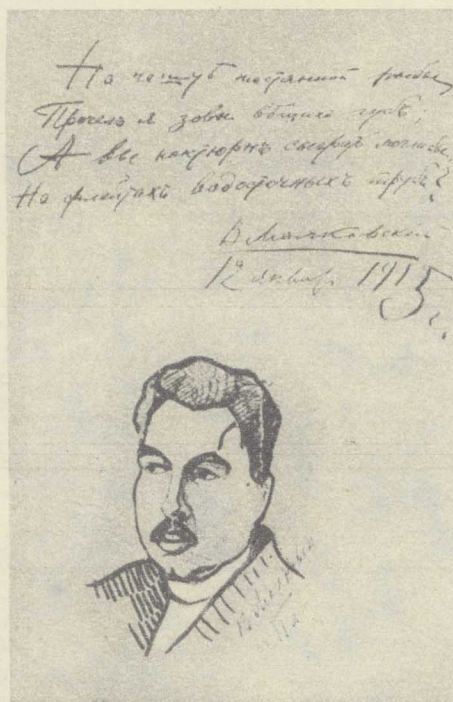 На чешуѣ жестянной рыбы
Прочелъ я зовы вѣщихъ губъ,
А вы ноктюрнъ сыграть могли бы,
На флейтахъ водосточныхъ трубъ?
В Маяковский
12 январ 1915 г.